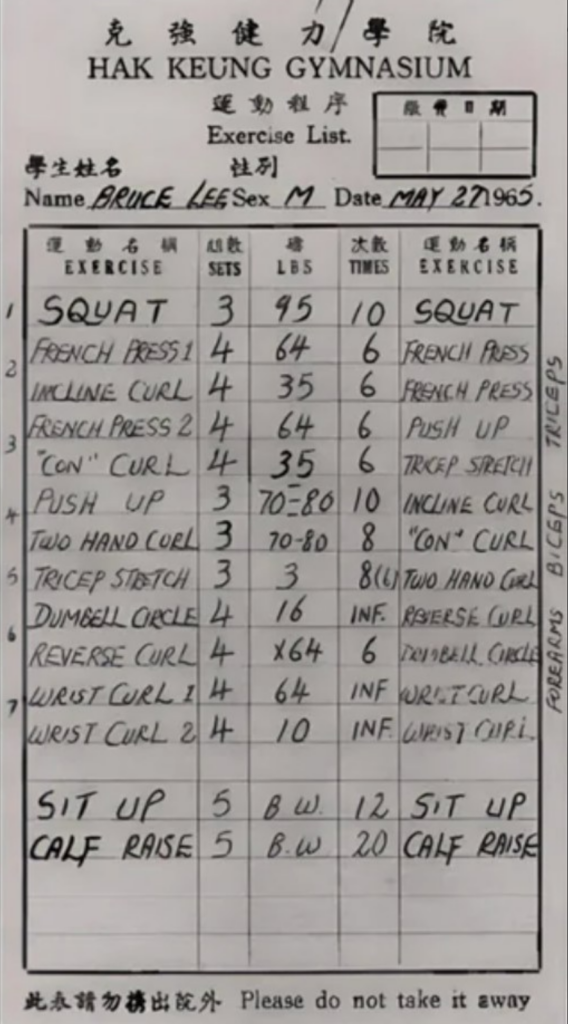 克強健力學院
HAK KEUNG GYMNASIUM
運動程序
繳費日期
Exercise List.
學生姓名 性別
Name BRUCE LEE Sex M Date MAY 27 1965.
運動名稱 組數 磅 次數 運動名稱
EXERCISE SETS LBS TIMES EXERCISE
1 SQUAT 3 95 10 SQUAT
FRENCH PRESS 1 4 64 6 FRENCH PRESS
2
INCLINE CURL 4 35 6 FRENCH PRESS
FRENCH PRESS 2 4 64 6 PUSH UP
3
"CON" CURL 4 35 6 TRICEP STRETCH
PUSH UP 3 70-80 10 INCLINE CURL
4
TWO HAND CURL 3 70-80 8 "CON" CURL
5 TRICEP STRETCH 3 3 8(6) TWO HAND CURL
DUMBELL CIRCLE 4 16 INF. REVERSE CURL
6
REVERSE CURL 4 X64 6 DUMBELL CIRCLE
WRIST CURL 1 4 64 INF WRIST CURL
7
WRIST CURL 2 4 10 INF. WRIST CURL
SIT UP 5 B.W. 12 SIT UP
CALF RAISE 5 B.W 20 CALF RAISE
TRICEPS
BICEPS
FOREARMS
此表請勿携出院外 Please do not take it away